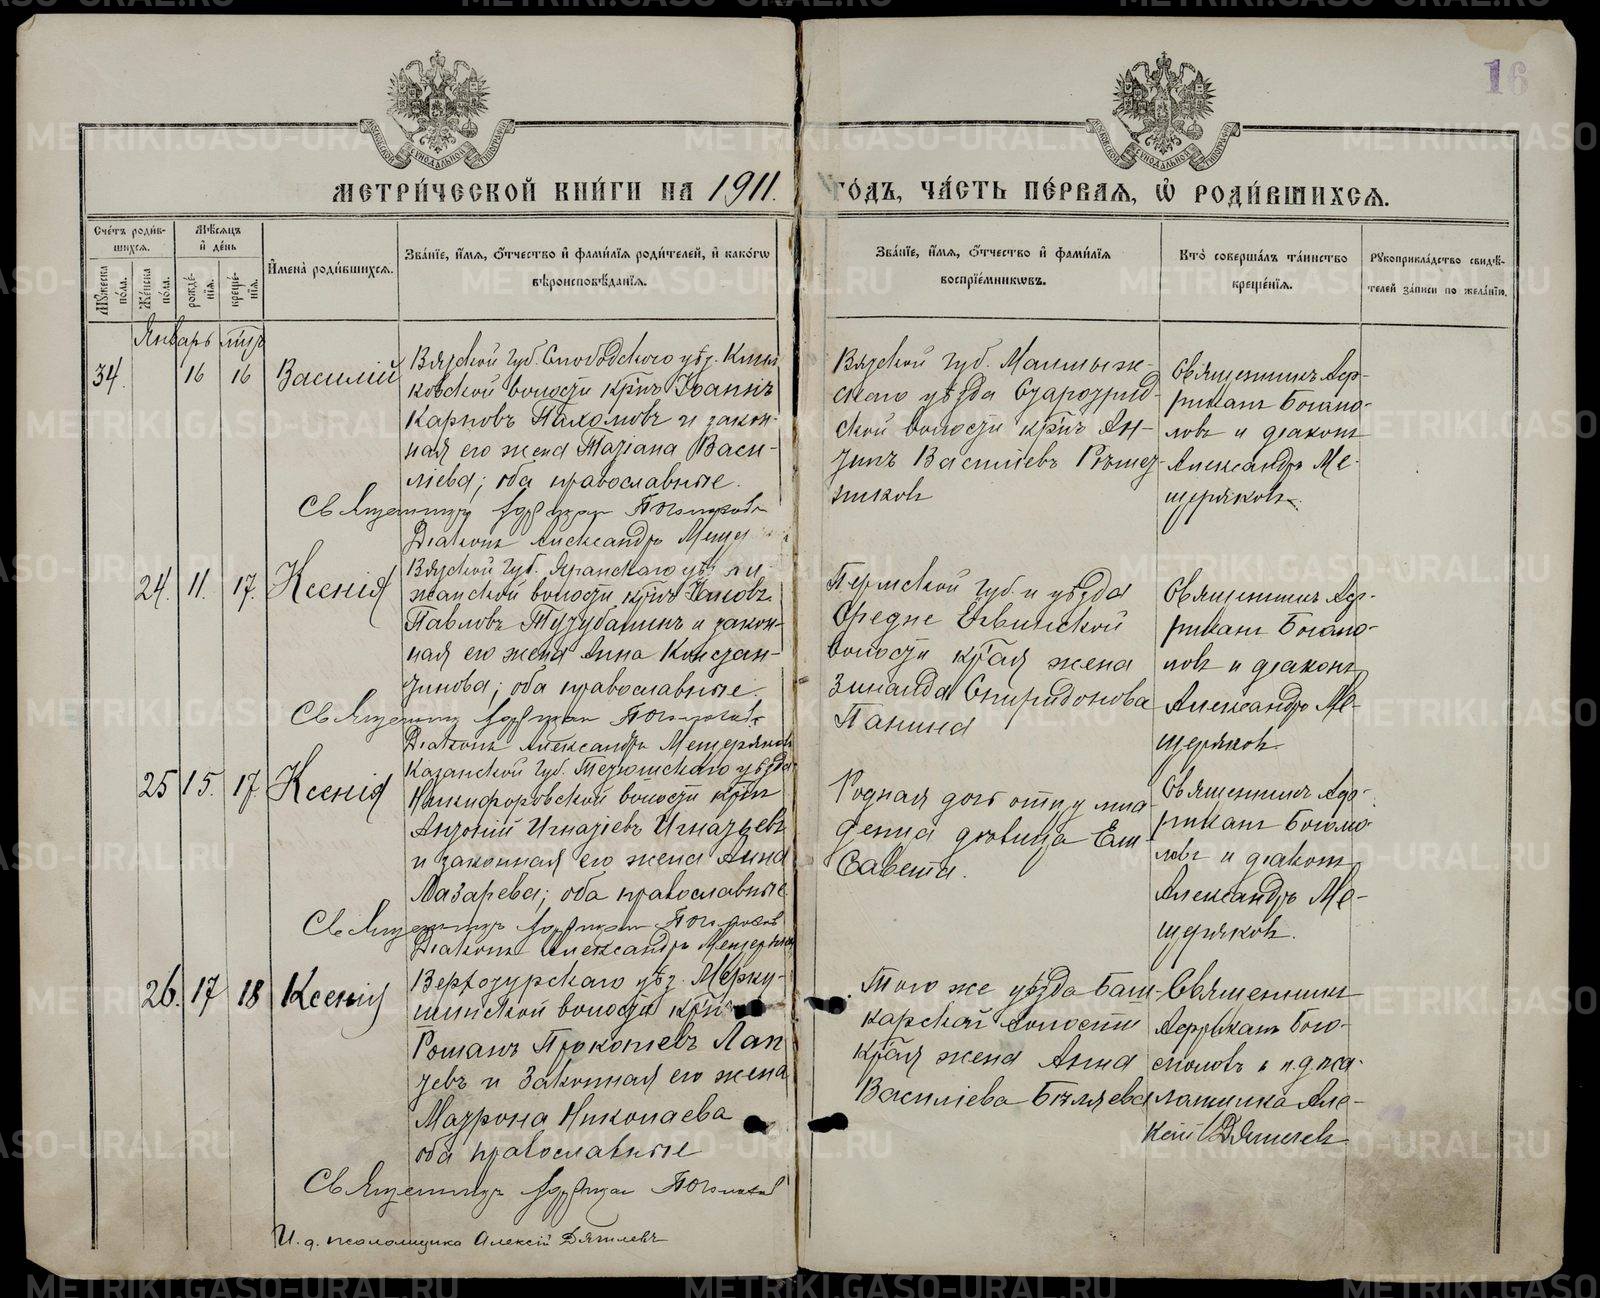 16
МЕТРИ́ЧЕСКОЙ КНИ́ГИ НА 1911. ГО́ДЪ, ЧА́СТЬ ПЕ́РВАЯ, Ѡ РОДИ́ВШИХСЯ.
Сче́тъ роди́вшихся.
Мѣ́сяцъ и де́нь
Имена̀ роди́вшихся.
Зва́нїе, и́мя, о́тчество и фами́лїя роди́телей, и како́гѡ
вѣроисповѣ́данїя.
Зва́нїе, и́мя, о́тчество и фами́лїя
воспрїе́мникѡвъ.
Кто̀ соверша́лъ та́инство
креще́нїя.
Рꙋкоприкла́дство свидѣ́-
телей за́писи по жела́нїю.
Мꙋ́жеска по́ла.
Же́нска по́ла.
рожде́нїя.
креще́нїя.
Январь
34. 16 16 Василій
Вятской губ. Слободского уѣз.
ковской волости кр҃нъ Іоаннъ
Карповъ Пахомовъ и закон-
ная его жена Татіана Васи-
ліева; оба православные.
Священникъ Африкан Богомолов
Діаконъ Александръ
Вятской губ. Малмыж-
скаго уѣзда Старотрыйской волости кр҃нъ Ан-
Василіевъ
Священникъ Аф-
риканъ Богомо-
ловъ и діаконъ
Александръ Ме-
щеряковъ.
24. 11. 17. Ксенія
Вятской губ. Яранскаго уѣз.
волости кр҃нъ Іаковъ
Павловъ Тузубаевъ и закон-
ная его жена Анна Констан-
тинова; оба православные.
Священник Африкан Богомолов
Діаконъ Александръ Мещеряковъ
Пермской губ. и уѣзда
Средне Егвинской
волости кр҃ая жена
Зинаида Спиридонова
Панина
Священникъ Аф-
риканъ Богомо-
ловъ и діаконъ
Александръ Ме-
щеряковъ
25 15. 17. Ксенія
Казанской губ. Тетюшскаго уѣзда
Никифоровской волости кр҃нъ
Антоній Игнатіевъ Игнатьевъ
и законная его жена Анна
Лазарева; оба православные
Священникъ Африкан Богомолов
Діаконъ Александръ Мещеряков
Родная дочь отцу мла-
денца дѣвица Ели-
савета.
Священникъ Аф-
риканъ Богомо-
ловъ и діаконъ
Александръ Ме-
щеряковъ.
26. 17 18 Ксенія
Верхотурскаго уѣз. Мерку-
шинской волости кр҃нъ
Романъ Прокопіевъ Лап
тевъ и законная его жена
Матрона Николаева
оба православные
Священникъ Африкан Богомолов
И. д. псаломщика Алексій Дятлевъ
Того же уѣзда Баш-
карской волости
кр҃ая жена Анна
Василіева Бѣляева
Священникъ
Африканъ Бого-
моловъ и и. д. пса-
ломщика Але-
ксій Дятлевъ
METRIKI.GASO-URAL.RU